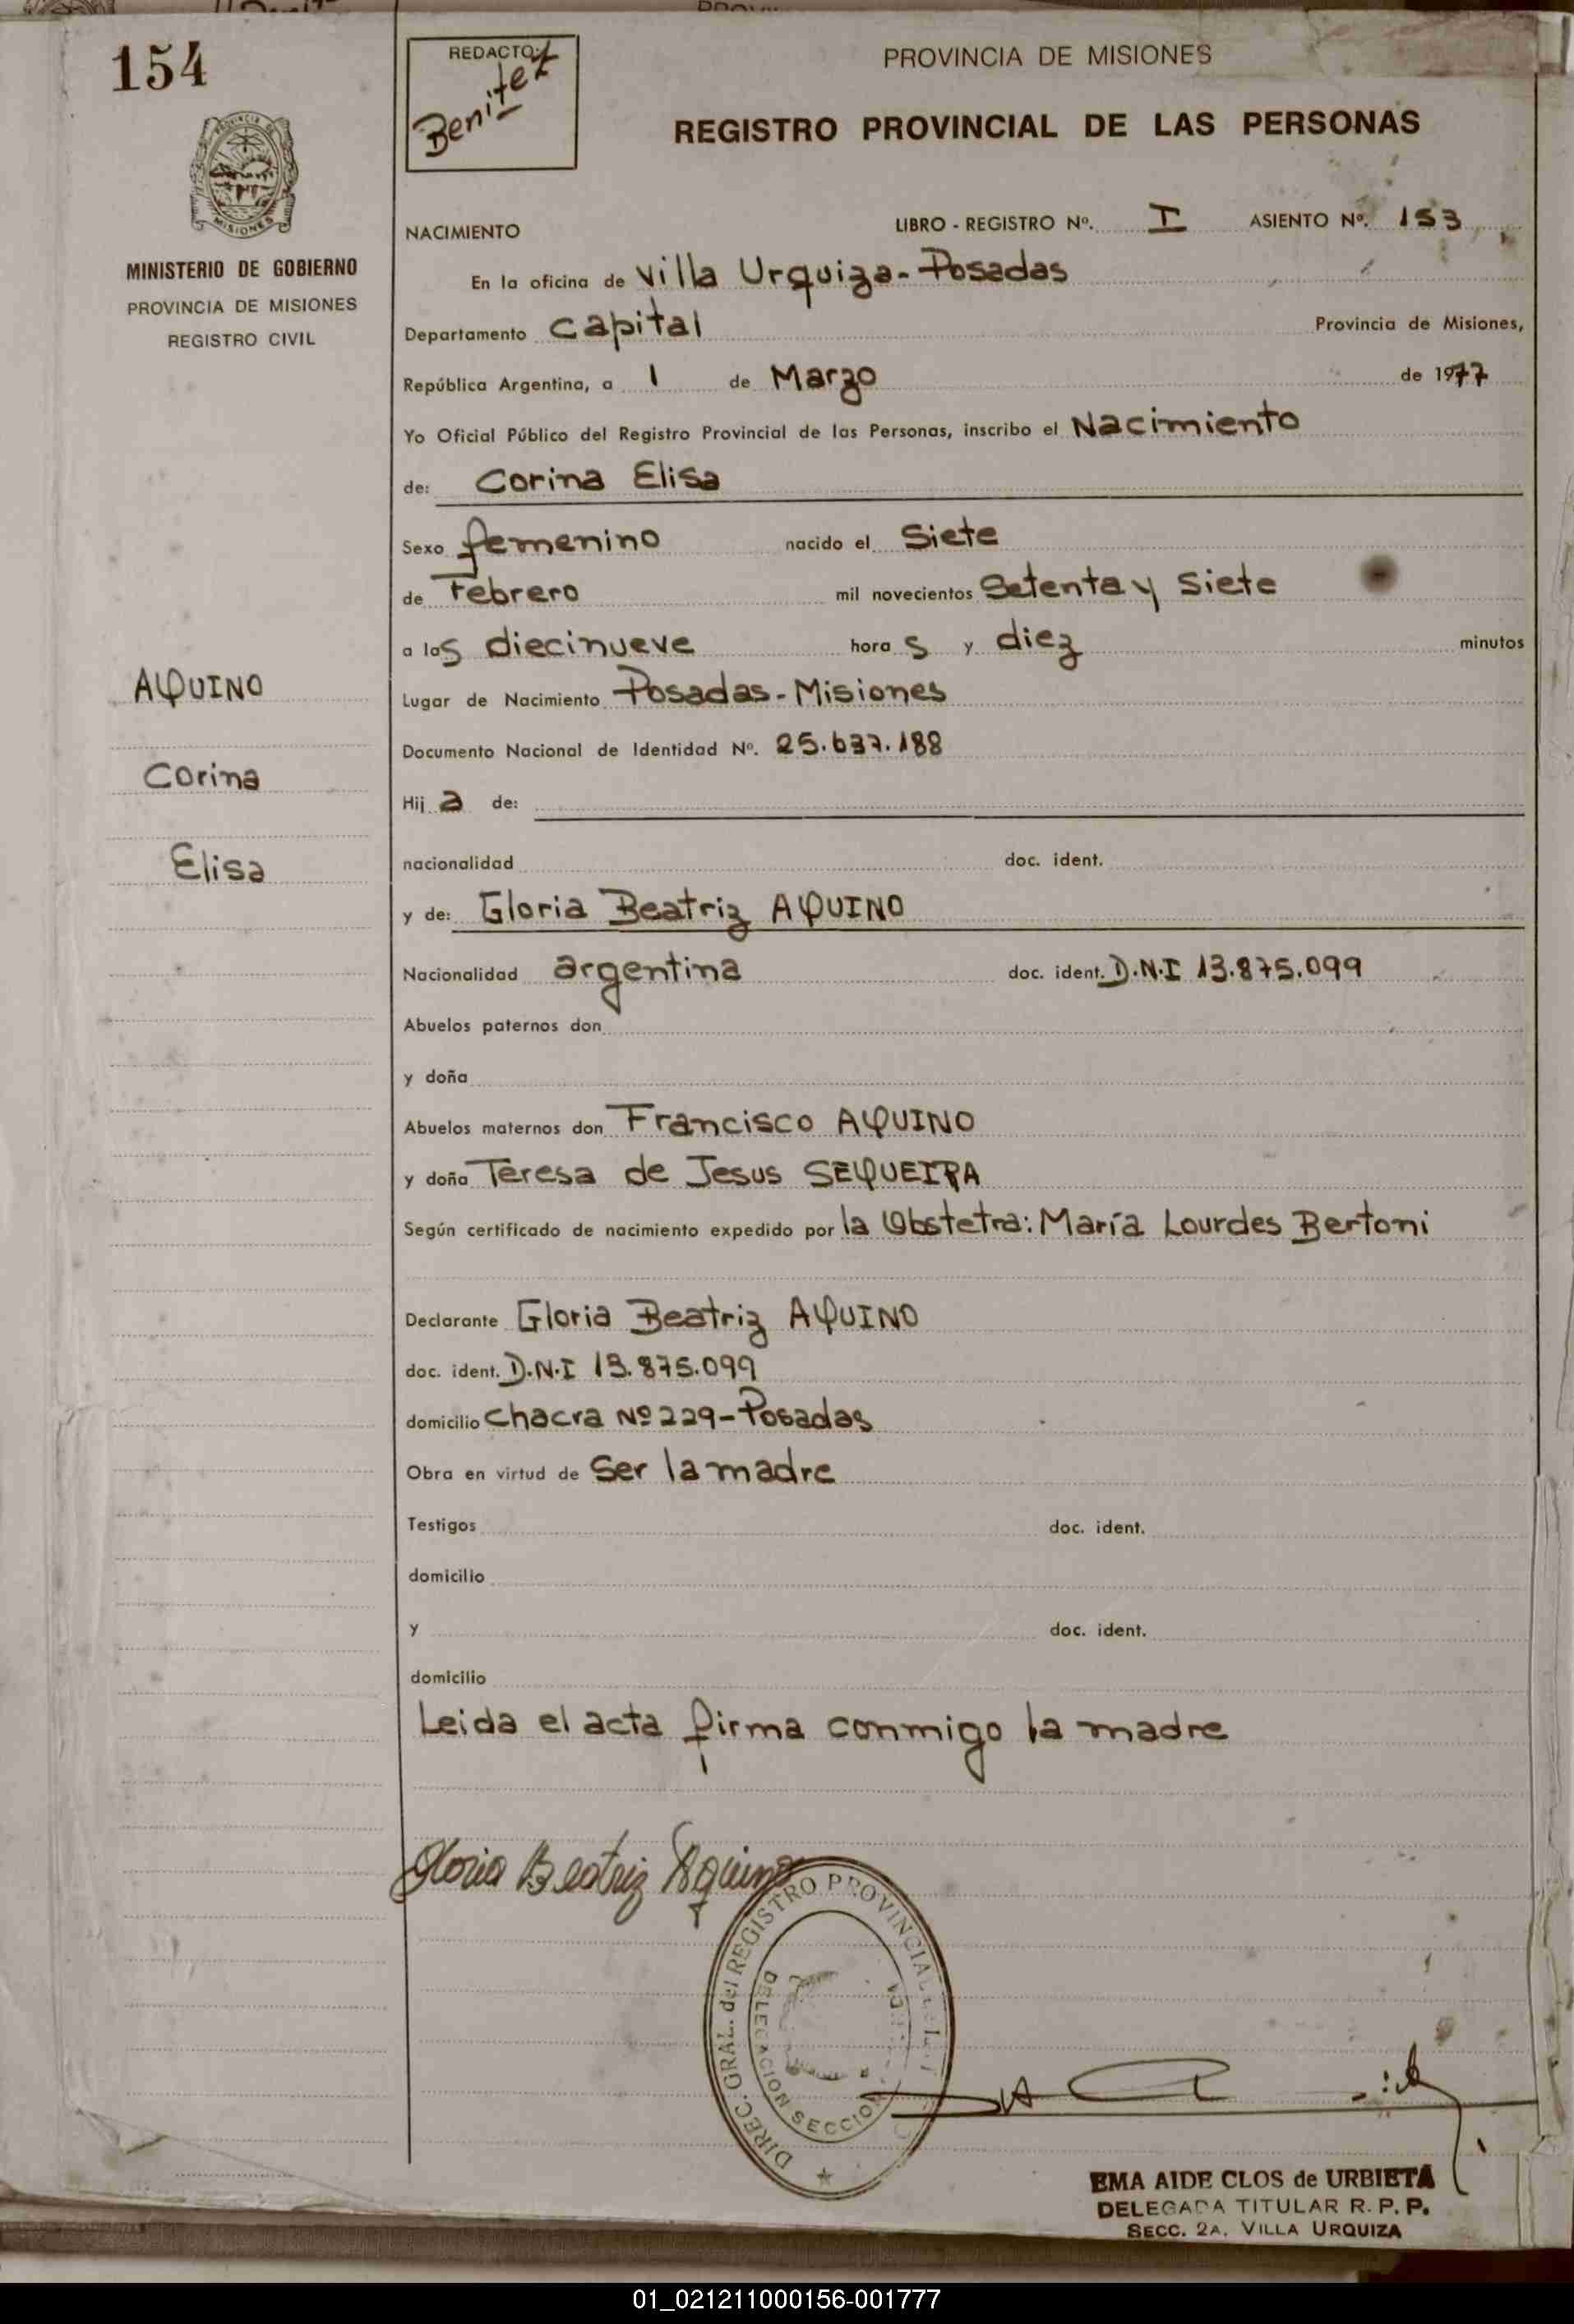 154
REDACTO:
Benitez
PROVINCIA DE MISIONES
REGISTRO PROVINCIAL DE LAS PERSONAS
PROVINCIA DE
MISIONES
MINISTERIO DE GOBIERNO
PROVINCIA DE MISIONES
REGISTRO CIVIL
NACIMIENTO LIBRO - REGISTRO Nº. I ASIENTO Nº. 153
En la oficina de Villa Urquiza - Posadas
Departamento Capital Provincia de Misiones,
República Argentina, a 1 de Marzo de 1977
Yo Oficial Público del Registro Provincial de las Personas, inscribo el Nacimiento
de: Corina Elisa
Sexo femenino nacido el Siete
de Febrero mil novecientos Setenta y Siete
a las diecinueve hora s y diez minutos
Lugar de Nacimiento Posadas - Misiones
Documento Nacional de Identidad Nº. 25.637.188
Hij a de:
nacionalidad doc. ident.
y de: Gloria Beatriz AQUINO
Nacionalidad argentina doc. ident. D.N.I 13.875.099
Abuelos paternos don
y doña
Abuelos maternos don Francisco AQUINO
y doña Teresa de Jesus SEQUEIRA
Según certificado de nacimiento expedido por la Obstetra: María Lourdes Bertoni
Declarante Gloria Beatriz AQUINO
doc. ident. D.N.I 13.875.099
domicilio Chacra Nº 229 - Posadas
Obra en virtud de Ser la madre
Testigos doc. ident.
domicilio
y doc. ident.
domicilio
Leida el acta firma conmigo la madre
AQUINO
Corina
Elisa
Gloria Beatriz Aquino
DIREC. GRAL. del REGISTRO PROVINCIAL
DELEGACION SECCION
EMA AIDE CLOS de URBIETA
DELEGADA TITULAR R. P. P.
SECC. 2A. VILLA URQUIZA
01_021211000156-001777